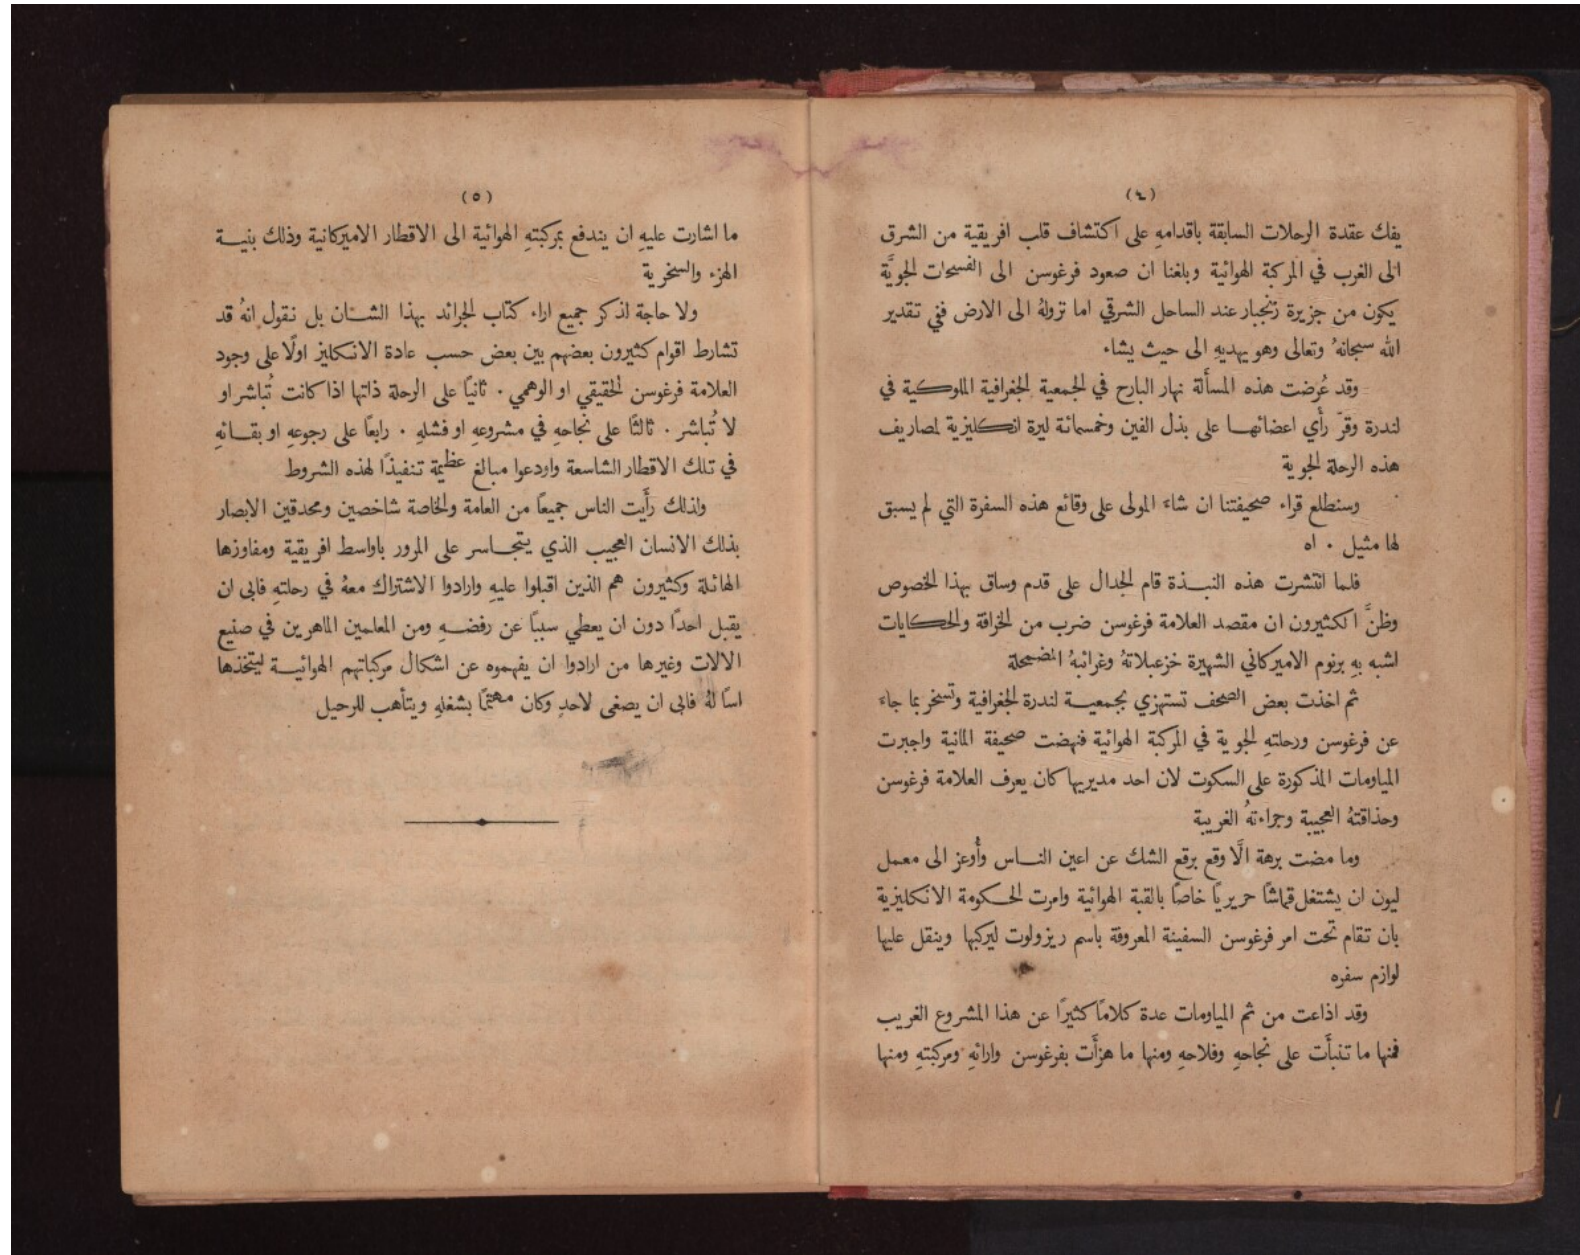 (٤)
يفك عقدة الرحلات السابقة باقدامهِ على اكتشاف قلب افريقية من الشرق
الى الغرب في المركبة الهوائية وبلغنا ان صعود فرغوسن الى الفسحات الجويَّة
يكون من جزيرة زنجبار عند الساحل الشرقي اما نزولهُ الى الارض ففي تقدير
الله سبحانهُ وتعالى وهو يهديهِ الى حيث يشاء
وقد عُرضت هذه المسألة نهار البارح في الجمعية الجغرافية الملوكية في
لندرة وقرّ رأي اعضائها على بذل الفين وخمسمائة ليرة انكليزية لمصاريف
هذه الرحلة الجوية
وسنطلع قراء صحيفتنا ان شاءَ المولى على وقائع هذه السفرة التي لم يسبق
لها مثيل . اه
فلما انتشرت هذه النبذة قام الجدال على قدم وساق بهذا الخصوص
وظنَّ الكثيرون ان مقصد العلامة فرغوسن ضرب من الخرافة والحكايات
اشبه بهِ برنوم الاميركاني الشهيرة خزعبلاتهُ وغرائبهُ المضمحلة
ثم اخذت بعض الصحف تستهزي بجمعية لندرة الجغرافية وتسخر بما جاءَ
عن فرغوسن ورحلتهِ الجوية في المركبة الهوائية فنهضت صحيفة المانية واجبرت
المياومات المذكورة على السكوت لان احد مديريها كان يعرف العلامة فرغوسن
وحذاقتهُ العجيبة وجراءتهُ الغريبة
وما مضت برهة الَّا وقع برقع الشك عن اعين الناس وأُوعز الى معمل
ليون ان يشتغل قماشًا حريريًا خاصًا بالقبة الهوائية وامرت الحكومة الانكليزية
بان تقام تحت امر فرغوسن السفينة المعروفة باسم ريزولوت ليركبها وينقل عليها
لوازم سفره
وقد اذاعت من ثم المياومات عدة كلامًا كثيرًا عن هذا المشروع الغريب
فمنها ما تنبأَت على نجاحهِ وفلاحهِ ومنها ما هزأَت بفرغوسن وارائهِ ومركبتهِ ومنها
(٥)
ما اشارت عليهِ ان يندفع بمركبتهِ الهوائية الى الاقطار الاميركانية وذلك بنية
الهزء والسخرية
ولا حاجة لذكر جميع اراء كتاب الجرائد بهذا الشان بل نقول انهُ قد
تشارط اقوام كثيرون بعضهم بين بعض حسب عادة الانكليز اولًا على وجود
العلامة فرغوسن الحقيقي او الوهمي . ثانيًا على الرحلة ذاتها اذا كانت تُباشر او
لا تُباشر . ثالثًا على نجاحهِ في مشروعهِ او فشلهِ . رابعًا على رجوعهِ او بقائهِ
في تلك الاقطار الشاسعة واودعوا مبالغ عظيمة تنفيذًا لهذه الشروط
ولذلك رأَيت الناس جميعًا من العامة والخاصة شاخصين ومحدقين الابصار
بذلك الانسان العجيب الذي يتجاسر على المرور باواسط افريقية ومفاوزها
الهائلة وكثيرون هم الذين اقبلوا عليهِ وارادوا الاشتراك معهُ في رحلتهِ فابى ان
يقبل احدًا دون ان يعطي سببًا عن رفضهِ ومن المعلمين الماهرين في صنيع
الالات وغيرها من ارادوا ان يفهموه عن اشكال مركباتهم الهوائية ليتخذها
اساً لهُ فابى ان يصغى لاحدٍ وكان مهتمًا بشغلهِ ويتأهب للرحيل